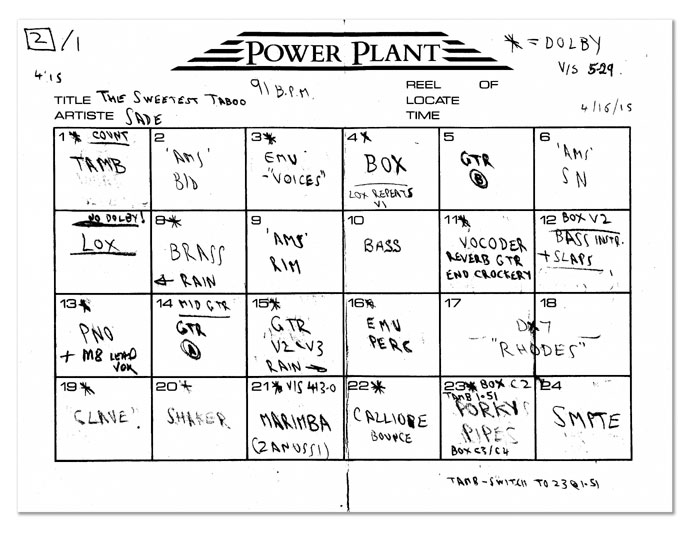 2/1
POWER PLANT
* = DOLBY
V/S 5·29.
4'15
91 B.P.M.
REEL OF
TITLE THE SWEETEST TABOO
LOCATE
4/16/15
ARTISTE SADE
TIME
1 * COUNT
TAMB
2
'AMS'
B/D
3 *
EMU
-"VOICES"
4 *
BOX
LOX REPEATS
V1
5
GTR
B
6
'AMS'
SN
NO DOLBY!
LOX
8 *
BRASS
← RAIN
9
'AMS'
RIM
10
BASS
11 *
VOCODER
REVERB GTR
END CROCKERY
12 BOX V2
BASS INSTR.
+ SLAPS
13 *
PNO
+ M8 LEAD
VOX
14 MID GTR
GTR
A
15 *
GTR
V2 < V3
RAIN →
16 *
EMU
PERC
17 18
DX7
"RHODES"
19 *
"CLAVE".
20 *
SHAKER
21 * V/S 413·0
MARIMBA
(ZANUSSI)
22 *
CALLIOPE
BOUNCE
23 * BOX C2
TAMB 1·51
PORKYS
PIPES
BOX C3/C4
24
SMPTE
TAMB - SWITCH TO 23 @ 1·51